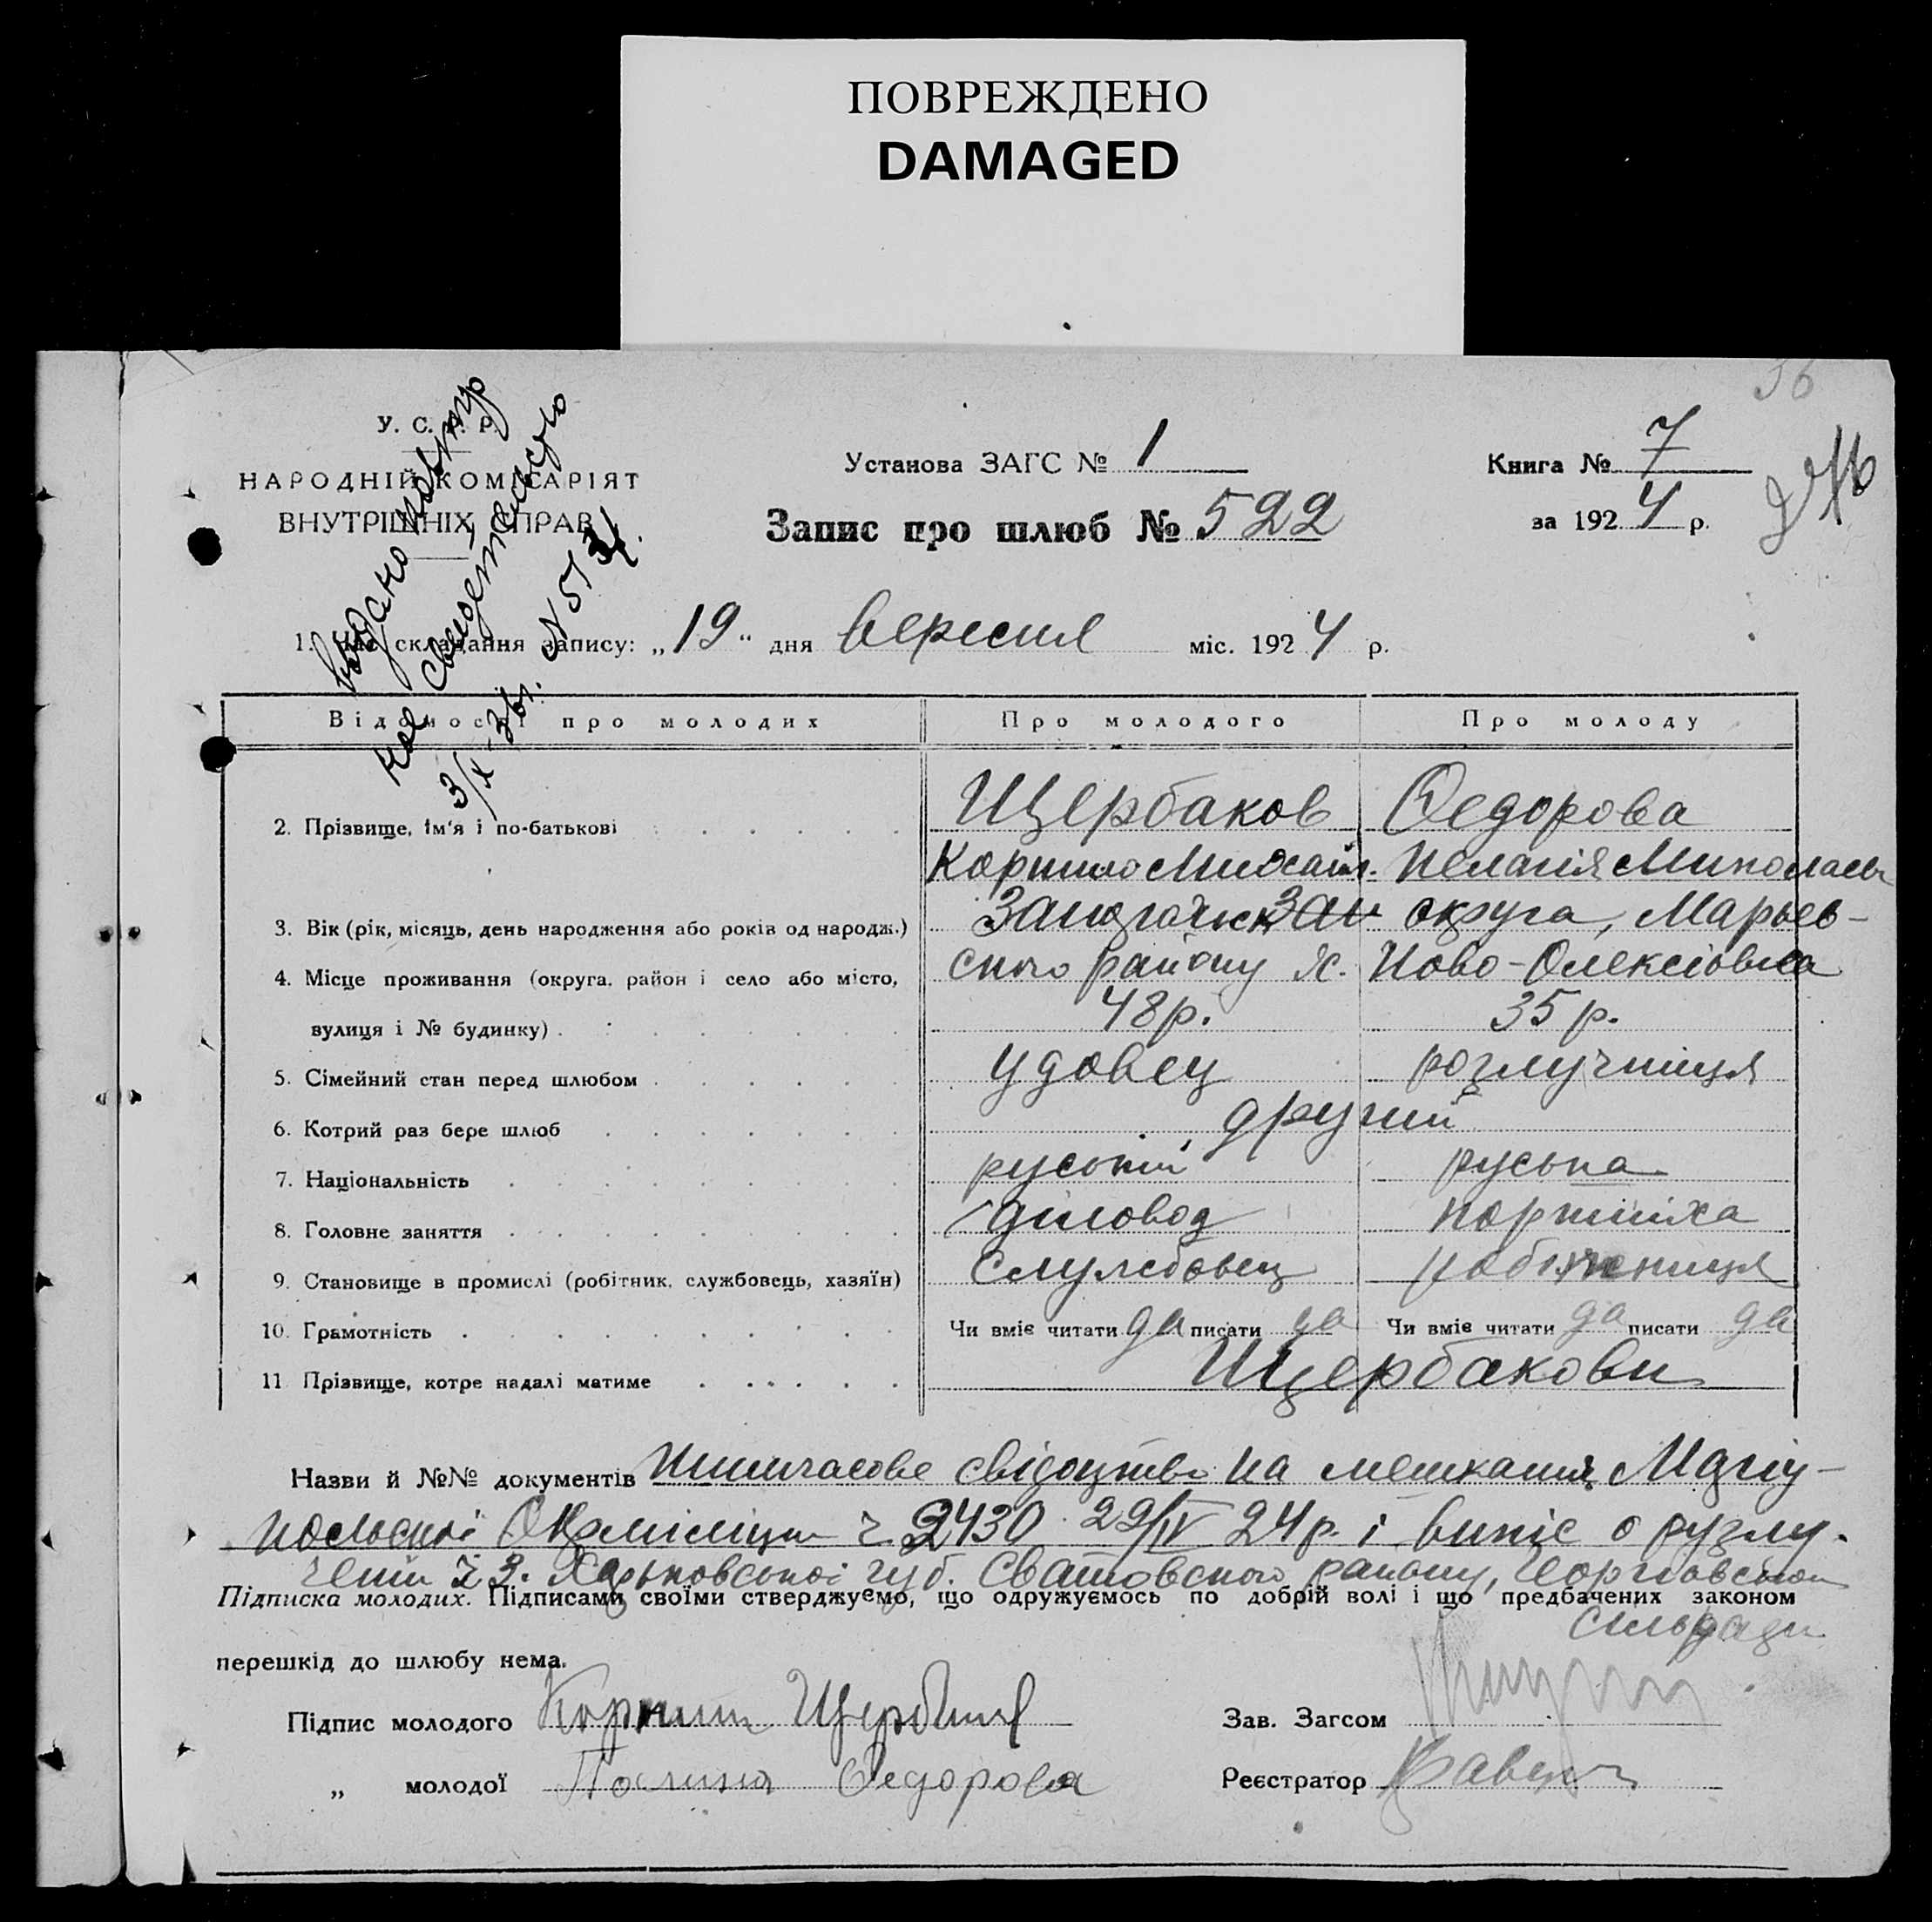 ПОВРЕЖДЕНО
DAMAGED
36
У. С. Р. Р.
НАРОДНІЙ КОМІСАРІЯТ
ВНУТРІШНІХ СПРАВ
Видано повтор
ное свидетельство
3/X-36г. N 573
Установа ЗАГС № 1
Запис про шлюб № 522
Книга № 7
за 1924 р.
1. Час складання запису: „19“ дня вересня міс. 1924 р.
Відомості про молодих Про молодого Про молоду
2. Прізвище, ім'я і по-батькові Щербаков Федорова
Корнило Михайл. Пелагія Миколаев
3. Вік (рік, місяць, день народження або років од народж.) округа, Марьев-
4. Місце проживання (округа, район і село або місто, ского району х. Ново-Олексіовка
вулиця і № будинку) 48 р. 35 р.
5. Сімейний стан перед шлюбом удовец розлучниця
6. Котрий раз бере шлюб другий
7. Національність руський руська
8. Головне заняття діловод портніха
9. Становище в промислі (робітник, службовець, хазяїн) службовец робітниця
10. Грамотність Чи вміє читати да писати да Чи вміє читати да писати да
11 Прізвище, котре надалі матиме Щербакови
Назви й №№ документів свідоцтво на мешкання Маріу-
польскоі Окрміліции ч. 2430 29/IV 24 р. і випіс о розлу-
ченні ч 3. Харьковськоі губ. Сватовського району,
Підписка молодих. Підписами своїми стверджуємо, що одружуємось по добрій волі і що предбачених законом
сільради
перешкід до шлюбу нема.
Підпис молодого Корнил Щербаков Зав. Загсом
„ молодої Полина Федорова Реєстратор